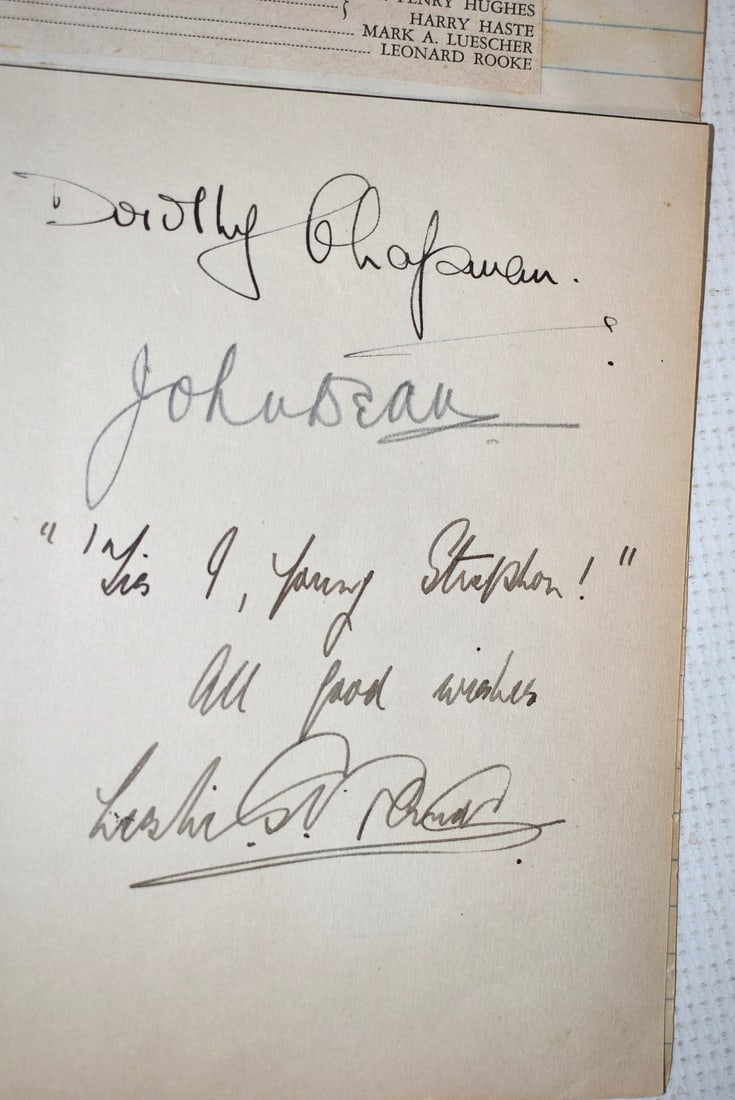 HENRY HUGHES
HARRY HASTE
MARK A. LUESCHER
LEONARD ROOKE
Dorothy Chapman.
John Dean
" 'Tis I, young Strephon! "
All good wishes
Leslie